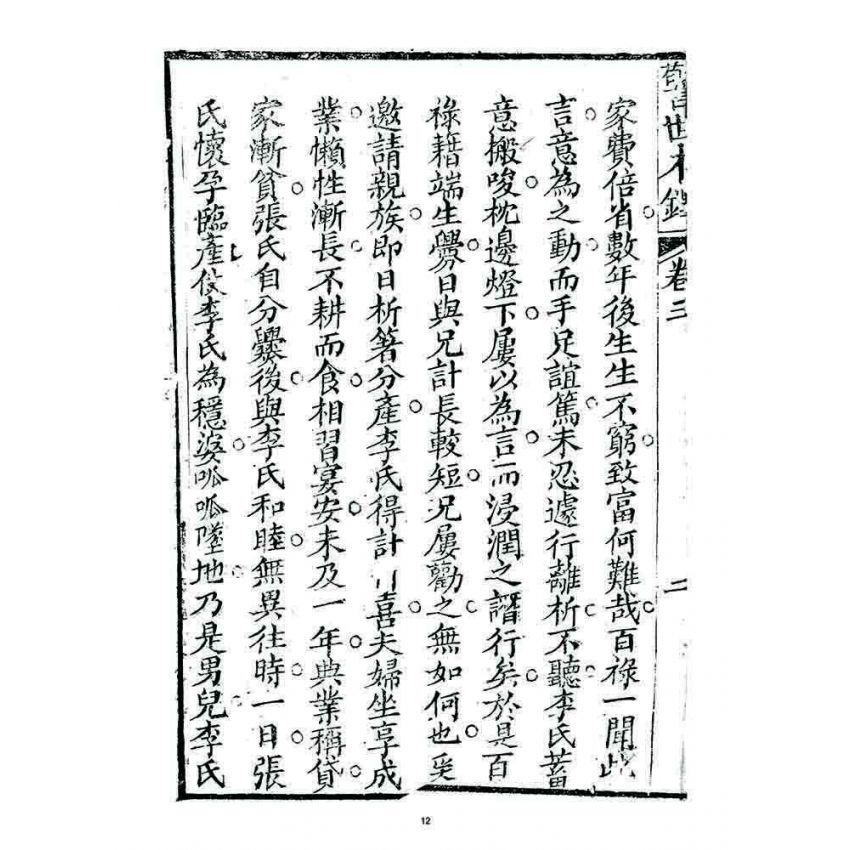 警世本鏡 卷三 二
家費倍省數年後生生不窮致富何難哉百祿一聞此
言意為之動而手足誼篤未忍遽行離析不聽李氏蓄
意搬唆枕邊燈下屢以為言而浸潤之譖行矣於是百
祿藉端生釁日與兄計長較短況屢勸之無如何也爰
邀請親族即日析箸分產李氏得計 喜夫婦坐享成
業懶性漸長不耕而食相習宴安未及一年典業稱貸
家漸貧張氏自分爨後與李氏和睦無異往時一日張
氏懷孕臨產 李氏為穩婆呱呱墜地乃是男兒李氏
12